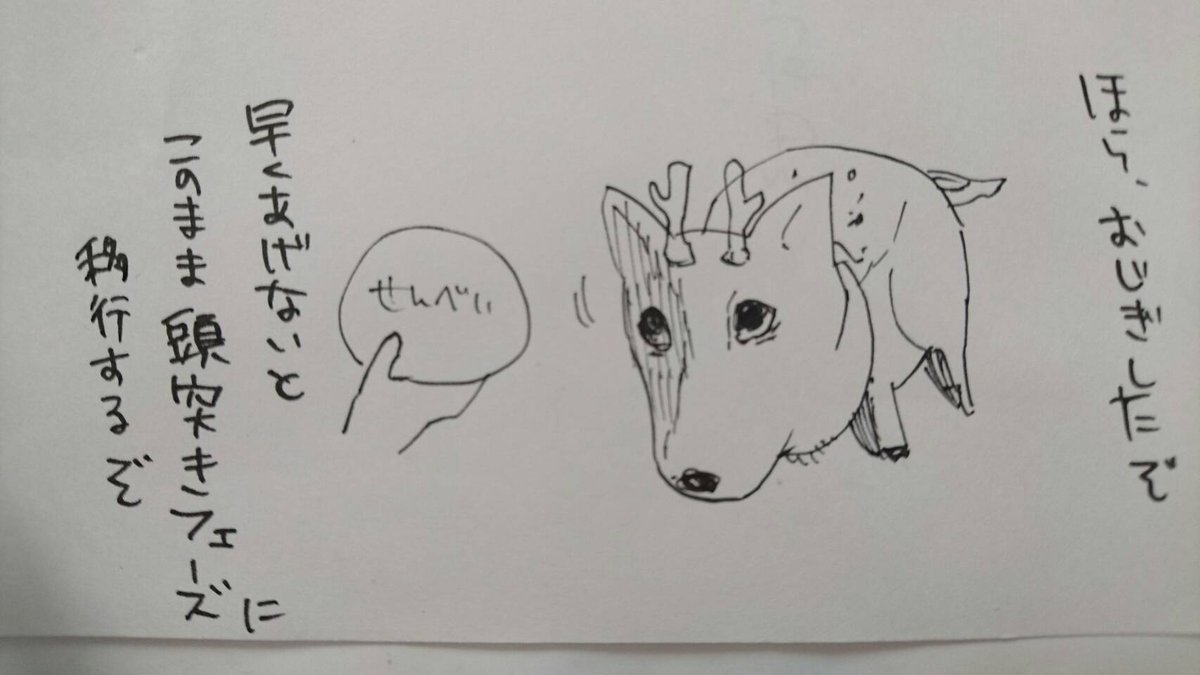 ほら、おじぎしたぞ
せんべい
早くあげないと
このまま頭突きフェーズに
移行するぞ